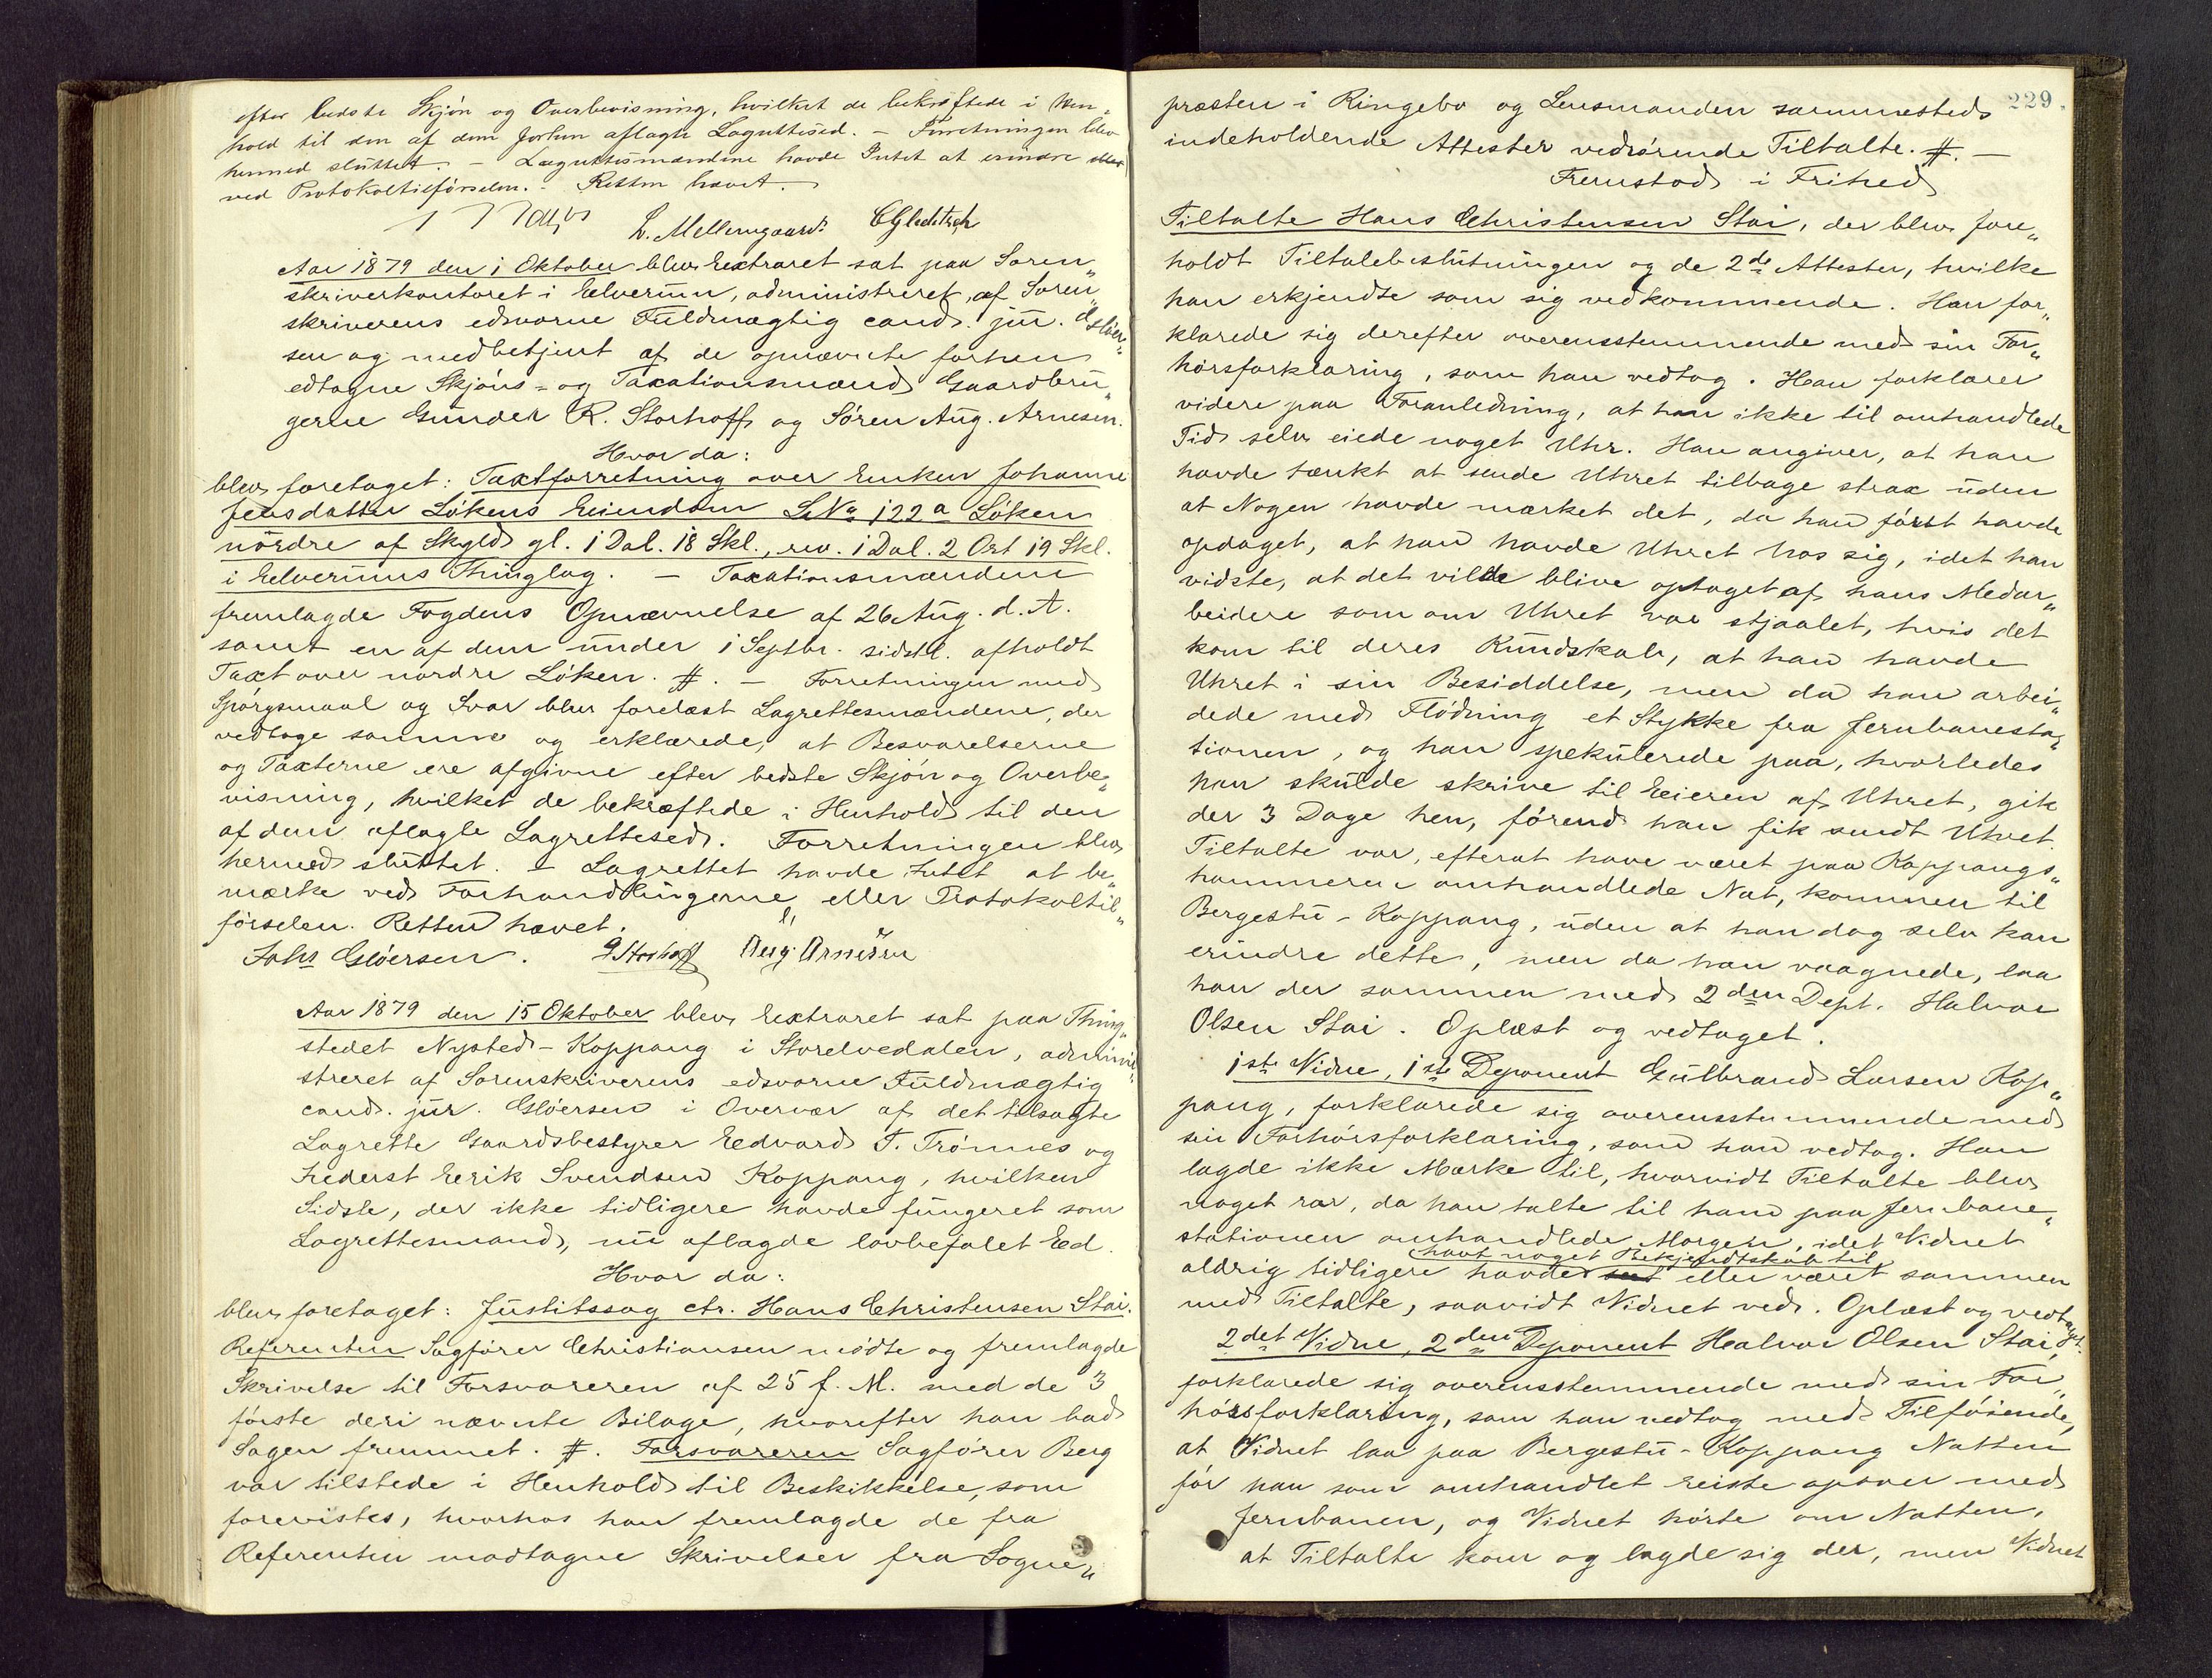 efter bedste Skjøn og Overbevisning, hvilket de bekræftede i Hen„
hold til den af dem forhen aflagte Lagrettesed. – Forretningen blev
hermed sluttet. – Lagrettesmændene havde Intet at erindre
ved Protokoltilførselen. – Retten hævet.
L. Mellemgaard. C Gleditsch
Aar 1879 den 1 Oktober blev Extraret sat paa Soren„
skriverkontoret i Elverum, administreret af Soren„
skriverens edsvorne Fuldmægtig cand. jur. Gløer„
sen og medbetjent af de opnævnte forhen
edtagne Skjøns- og Taxationsmænd Gaardbru„
gerne Gunder R. Storhoff og Søren Aug. Arnesen.
Hvor da:
blev foretaget: Taxtforretning over Enken Johanne
Jensdatter Løkens Eiendom LNo 122a Løken
nordre af Skyld gl. 1 Dal. 18 Skl., rev. 1 Dal. 2 Ort 19 Skl.
i Elverums Thinglag. – Taxationsmændene
fremlagde Fogdens Opnævnelse af 26 Aug. d. A.
samt en af dem under 1 Septbr. sidstl. afholdt
Taxt over nordre Løken. #. – Forretningen med
Spørgsmaal og Svar blev forelæst Lagrettesmændene, der
vedtoge samme og erklærede, at Besvarelserne
og Taxterne ere afgivne efter bedste Skjøn og Overbe„
visning, hvilket de bekræftede i Henhold til den
af dem aflagte Lagrettesed. Forretningen blev
hermed sluttet. – Lagrettet havde Intet at be„
mærke ved Forhandlingerne eller Protokoltil„
førselen. Retten hævet.
Johs Gløersen. G Storhoff Aug. Arnesen
Aar 1879 den 15 Oktober blev Extraret sat paa Thing„
stedet Nysted-Koppang i Storelvedalen, admini„
streret af Sorenskriverens edsvorne Fuldmægtig
cand. jur. Gløersen i Overvær af det tilsagte
Lagrette Gaardsbestyrer Edvard T. Trønnes og
Føderst Erik Svendsen Koppang, hvilken
Sidste, der ikke tidligere havde fungeret som
Lagrettesmand, nu aflagde lovbefalet Ed.
Hvor da:
blev foretaget: Justitssag ctr. Hans Christensen Stai.
Referenten Sagfører Christiansen mødte og fremlagde
Skrivelse til Forsvareren af 25 f. M. med de 3
første deri nævnte Bilage, hvorefter han bad
Sagen fremmet. #. Forsvareren Sagfører Berg
var tilstede i Henhold til Beskikkelse, som
forevistes, hvorhos han fremlagde de fra
Referenten modtagne Skrivelser fra Sogne„
229.
præsten i Ringebo og Lensmanden sammesteds
indeholdende Attester vedrørende Tiltalte. #. –
Fremstod i Frihed
Tiltalte Hans Christensen Stai, der blev fore„
holdt Tiltalebeslutningen og de 2de Attester, hvilke
han erkjendte som sig vedkommende. Han for„
klarede sig derefter overensstemmende med sin For„
hørsforklaring, som han vedtog. Han forklarer
videre paa Foranledning, at han ikke til omhandlede
Tid selv eiede noget Uhr. Han angiver, at han
havde tænkt at sende Uhret tilbage strax uden
at Nogen havde mærket det, da han først havde
opdaget, at han havde Uhret hos sig, idet han
vidste, at det vilde blive optaget af hans Medar„
beidere som om Uhret var stjaalet, hvis det
kom til deres Kundskab, at han havde
Uhret i sin Besiddelse, men da han arbei„
dede med Flødning et Stykke fra Jernbanesta„
tionen, og han spekulerede paa, hvorledes
han skulde skrive til Eieren af Uhret, gik
der 3 Dage hen, førend han fik sendt Uhret.
Tiltalte var, efterat have været paa Koppangs„
hammeren omhandlede Nat, kommen til
Bergestu-Koppang, uden at han dog selv kan
erindre dette, men da han vaagnede, laa
han der sammen med 2den Dept. Halvor
Olsen Stai. Oplæst og vedtaget.
1ste Vidne, 1ste Deponent Gulbrand Larsen Kop„
pang, forklarede sig overensstemmende med
sin Forhørsforklaring, som han vedtog. Han
lagde ikke Mærke til, hvorvidt Tiltalte blev
noget rar, da han talte til ham paa Jernbane„
stationen omhandlede Morgen, idet Vidnet
havt noget Bekjendtskab til
aldrig tidligere havde seet eller været sammen
med Tiltalte, saavidt Vidnet ved. Oplæst og vedtaget.
2det Vidne, 2den Deponent Halvor Olsen Stai,
forklarede sig overensstemmende med sin For„
hørsforklaring, som han vedtog med Tilføiende,
at Vidnet laa paa Bergestu-Koppang Natten
før han som omhandlet reiste opover med
Jernbanen, og Vidnet hørte om Natten,
at Tiltalte kom og lagde sig der, men Vidnet